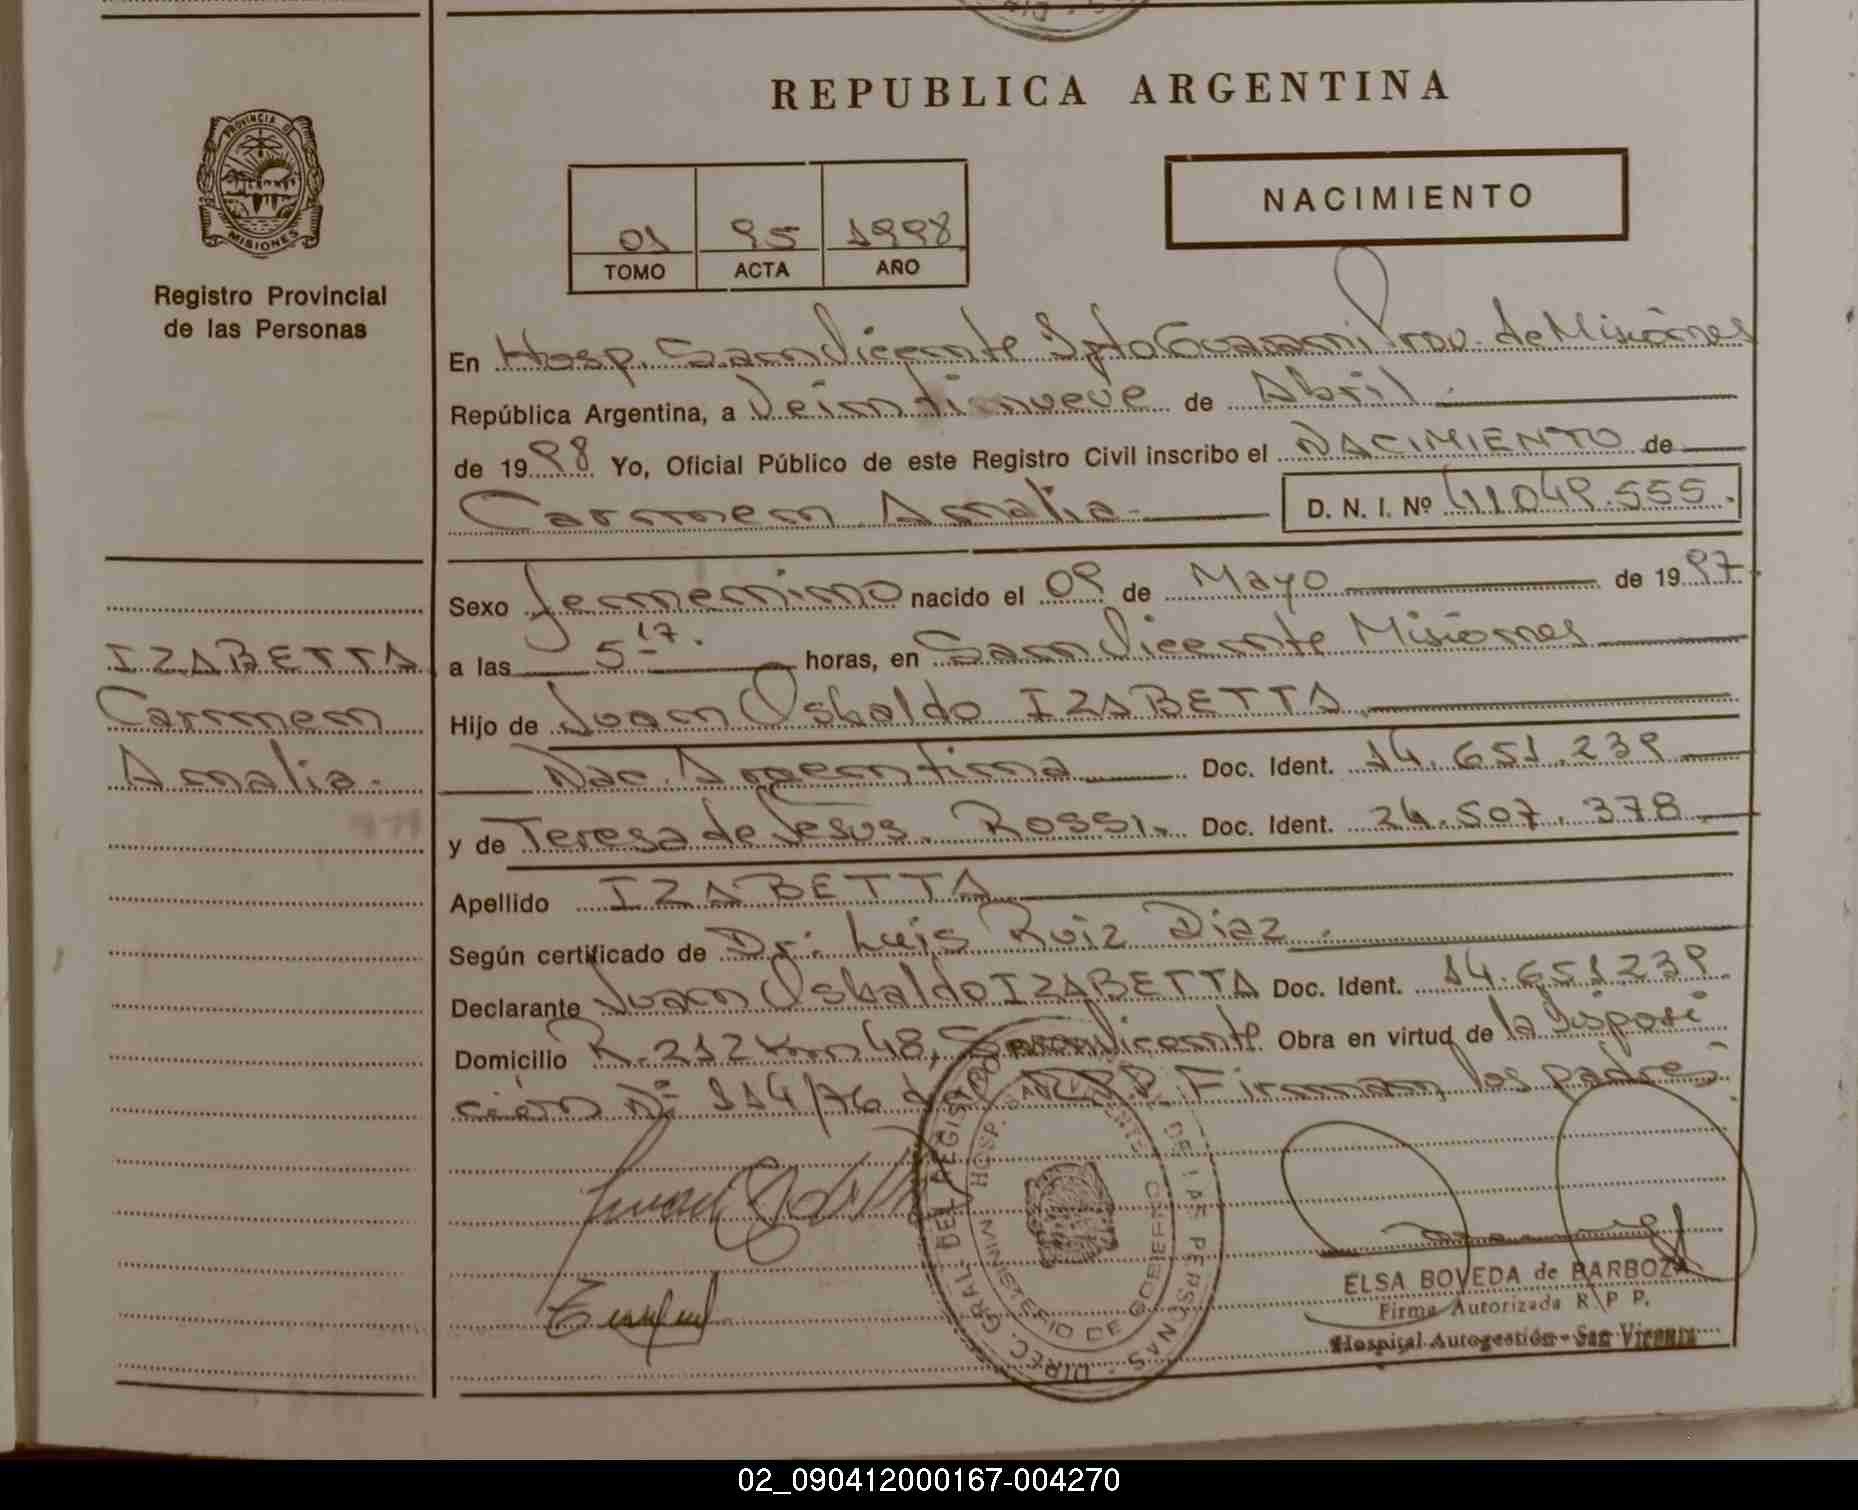 REPUBLICA ARGENTINA
PROVINCIA DE
MISIONES
Registro Provincial
de las Personas
NACIMIENTO
01 95 1998
TOMO ACTA AÑO
En Hosp. San Vicente Dpto Guarani Prov. de Misiones
República Argentina, a Veintinueve de Abril
de 1998 Yo, Oficial Público de este Registro Civil inscribo el NACIMIENTO de
Carmen Amalia D. N. I. Nº 41049.555.
Sexo femenino nacido el 09 de Mayo de 1997
IZABETTA
Carmen
Amalia.
a las 5 17. horas, en San Vicente Misiones
Hijo de Juan Osbaldo IZABETTA
Nac. Argentina Doc. Ident. 14.651.239
y de Teresa de Jesus Rossi. Doc. Ident. 24.507.378
Apellido IZABETTA
Según certificado de Dr. Luis Ruiz Diaz
Declarante Juan Osbaldo IZABETTA Doc. Ident. 14.651239
Domicilio R. 212 Km 48, San Vicente Obra en virtud de la Disposi
ción Nº 114/76 del R.P.P. Firman los padres
DIREC. GRAL. DEL REGISTRO DE LAS PERSONAS
HOSP. SAN VICENTE
MINISTERIO DE GOBIERNO
ELSA BOVEDA de BARBOZA
Firma Autorizada R P P.
Hospital Autogestión - San Vicente
02_090412000167-004270